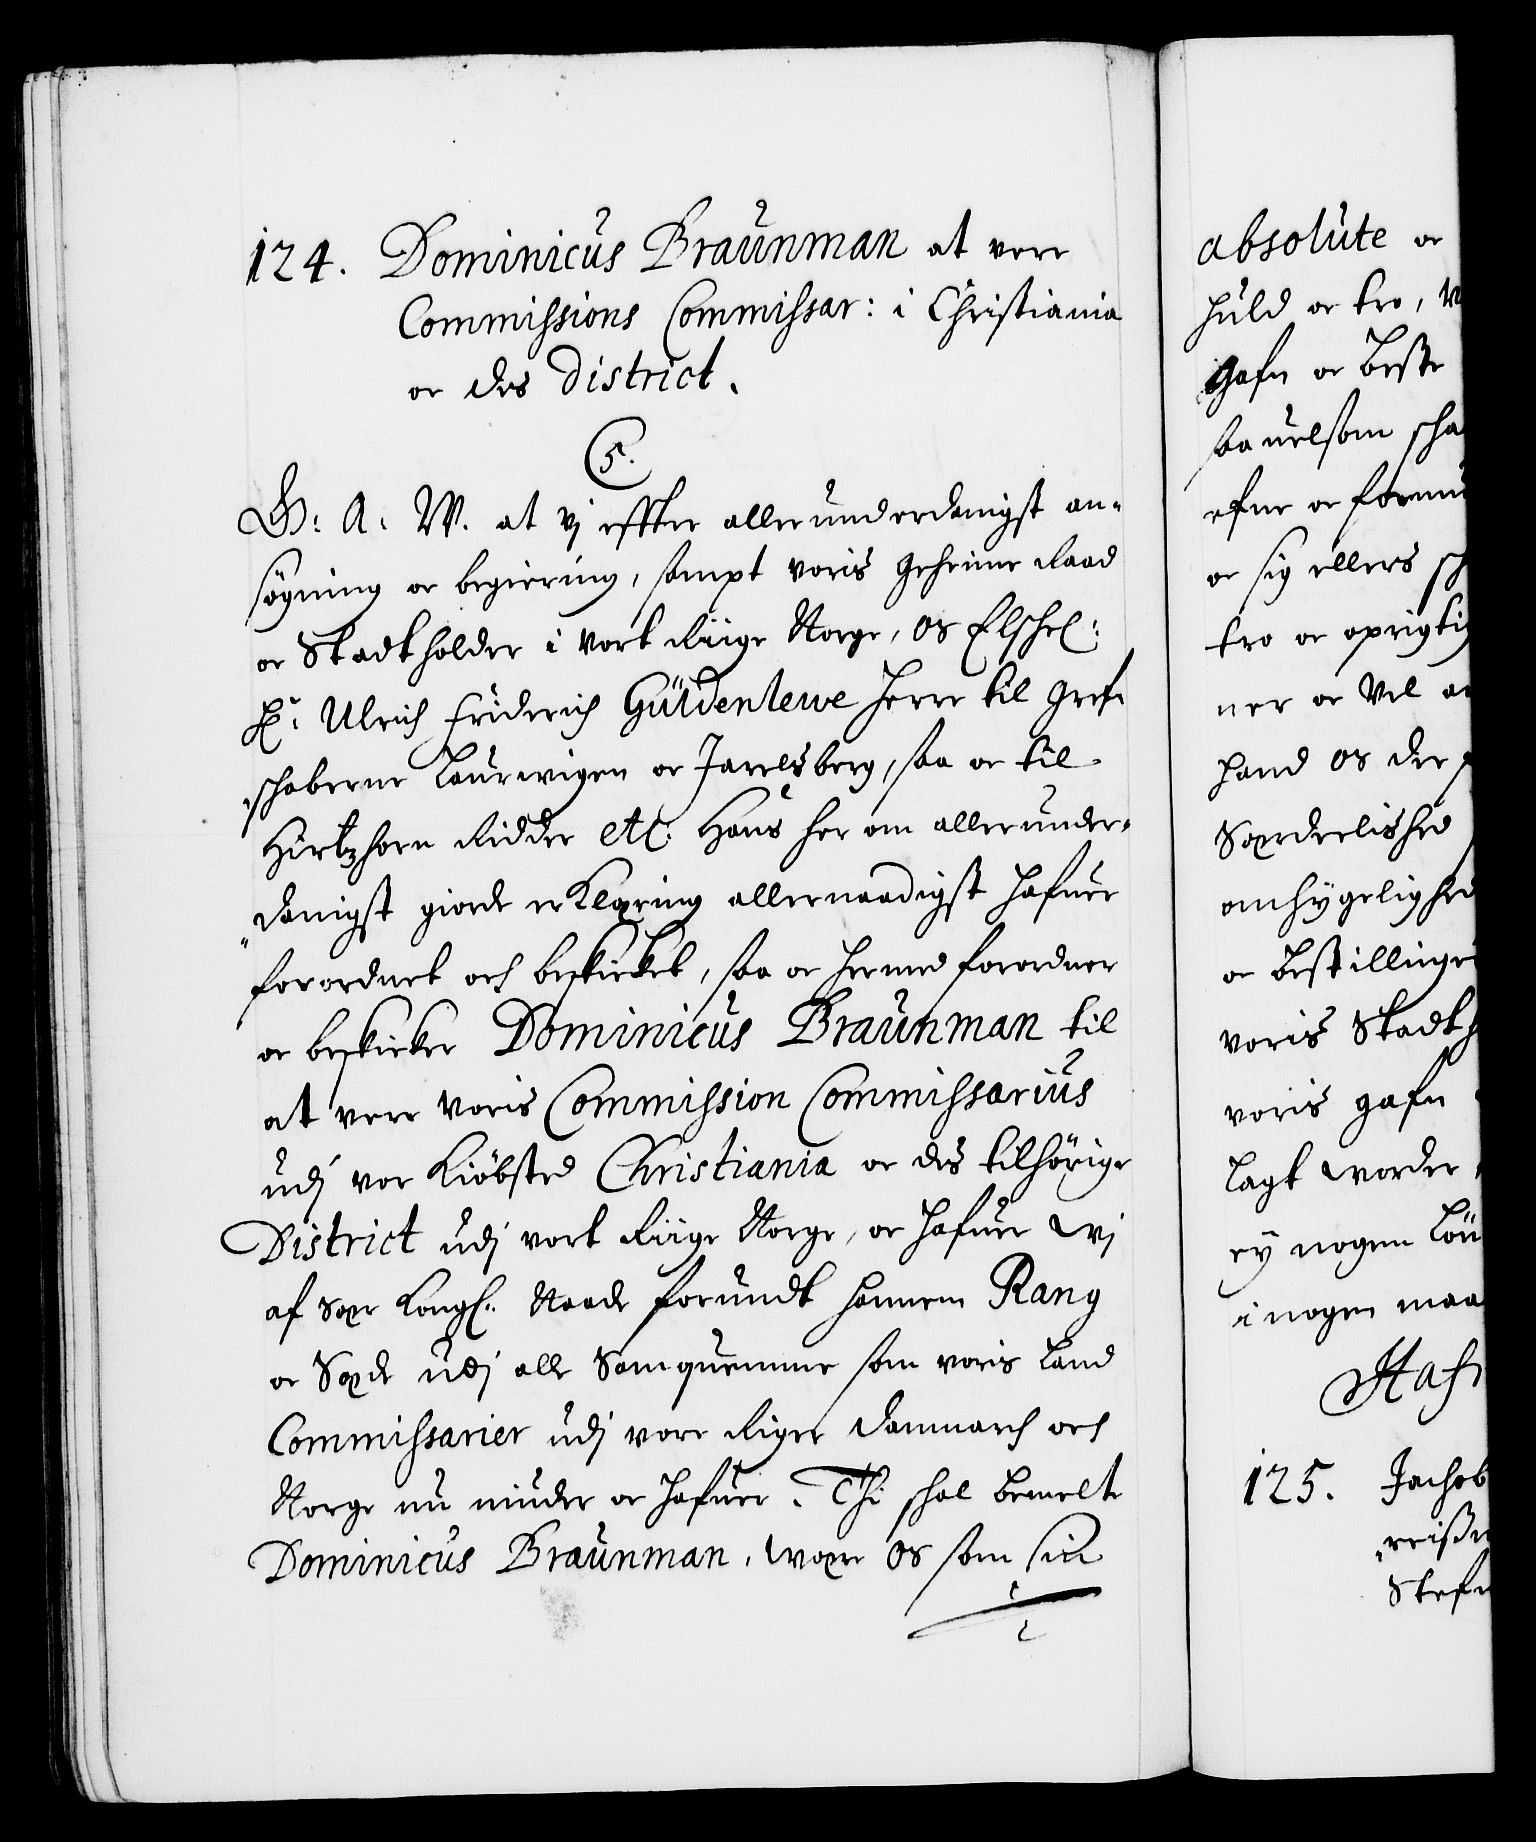 124. Dominicus Braunman at vere
Commissions Commissar: i Christiania
oc des District.
C5.
G: A: W. at vj effter allerunderdanigst an-
søgning oc begiering, sampt voris geheime Raad
oc Stadtholder i vort Riige Norge, os Elschel:
Hr. Ulrich Friderich Güldenlewe Herre til Gref-
schaberne Laurwigen oc Jarelsberg, saa oc til
Hirtzhorn Ridder etc. Hans her om allerunder-
danigst giorde erklæring allernaadigst hafuer
forordnet och beskicket, saa oc hermed forordner
oc beskicker Dominicus Braunman til
at vere voris Commission Commissarius
udj vor Kiøbsted Christiania oc des tilhørige
District udj vort Riige Norge, oc hafuer wj
af sær Kongl. Naade forundt hannem Rang
oc Sæde udj alle Samquemme som voris Land
Commissarier udj vore Riger Danmarch och
Norge nu niuder oc hafuer. Thi schal bemelte
Dominicus Braunman, være os som sin
absolute
huld oc tro,
gafn oc beste
saauelsom
efne oc
oc sig ellers
tro oc
ner oc vel
hand os der
Særdeelished
omhygelighed
oc
voris
voris gafn
lagt worder
ey nogen
i nogen
125.